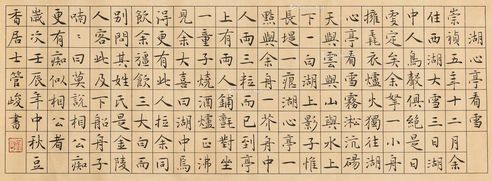 湖心亭看雪
崇禎五年十二月余
住西湖大雪三日湖
中人鳥聲俱絕是日
更定矣余拏一小舟
擁毳衣爐火獨往湖
心亭看雪霧淞沆碭
天與雲與山與水上
下一白湖上影子惟
長堤一痕湖心亭一
點與余舟一芥舟中
人兩三粒而已到亭
上有兩人鋪氈對坐
一童子燒酒爐正沸
見余大喜曰湖中焉
得更有此人拉余同
飲余強飲三大白而
別問其姓氏是金陵
人客此及下船舟子
喃〻曰莫說相公痴
更有痴似相公者
歲次壬辰年中秋豆
香居士管峻書